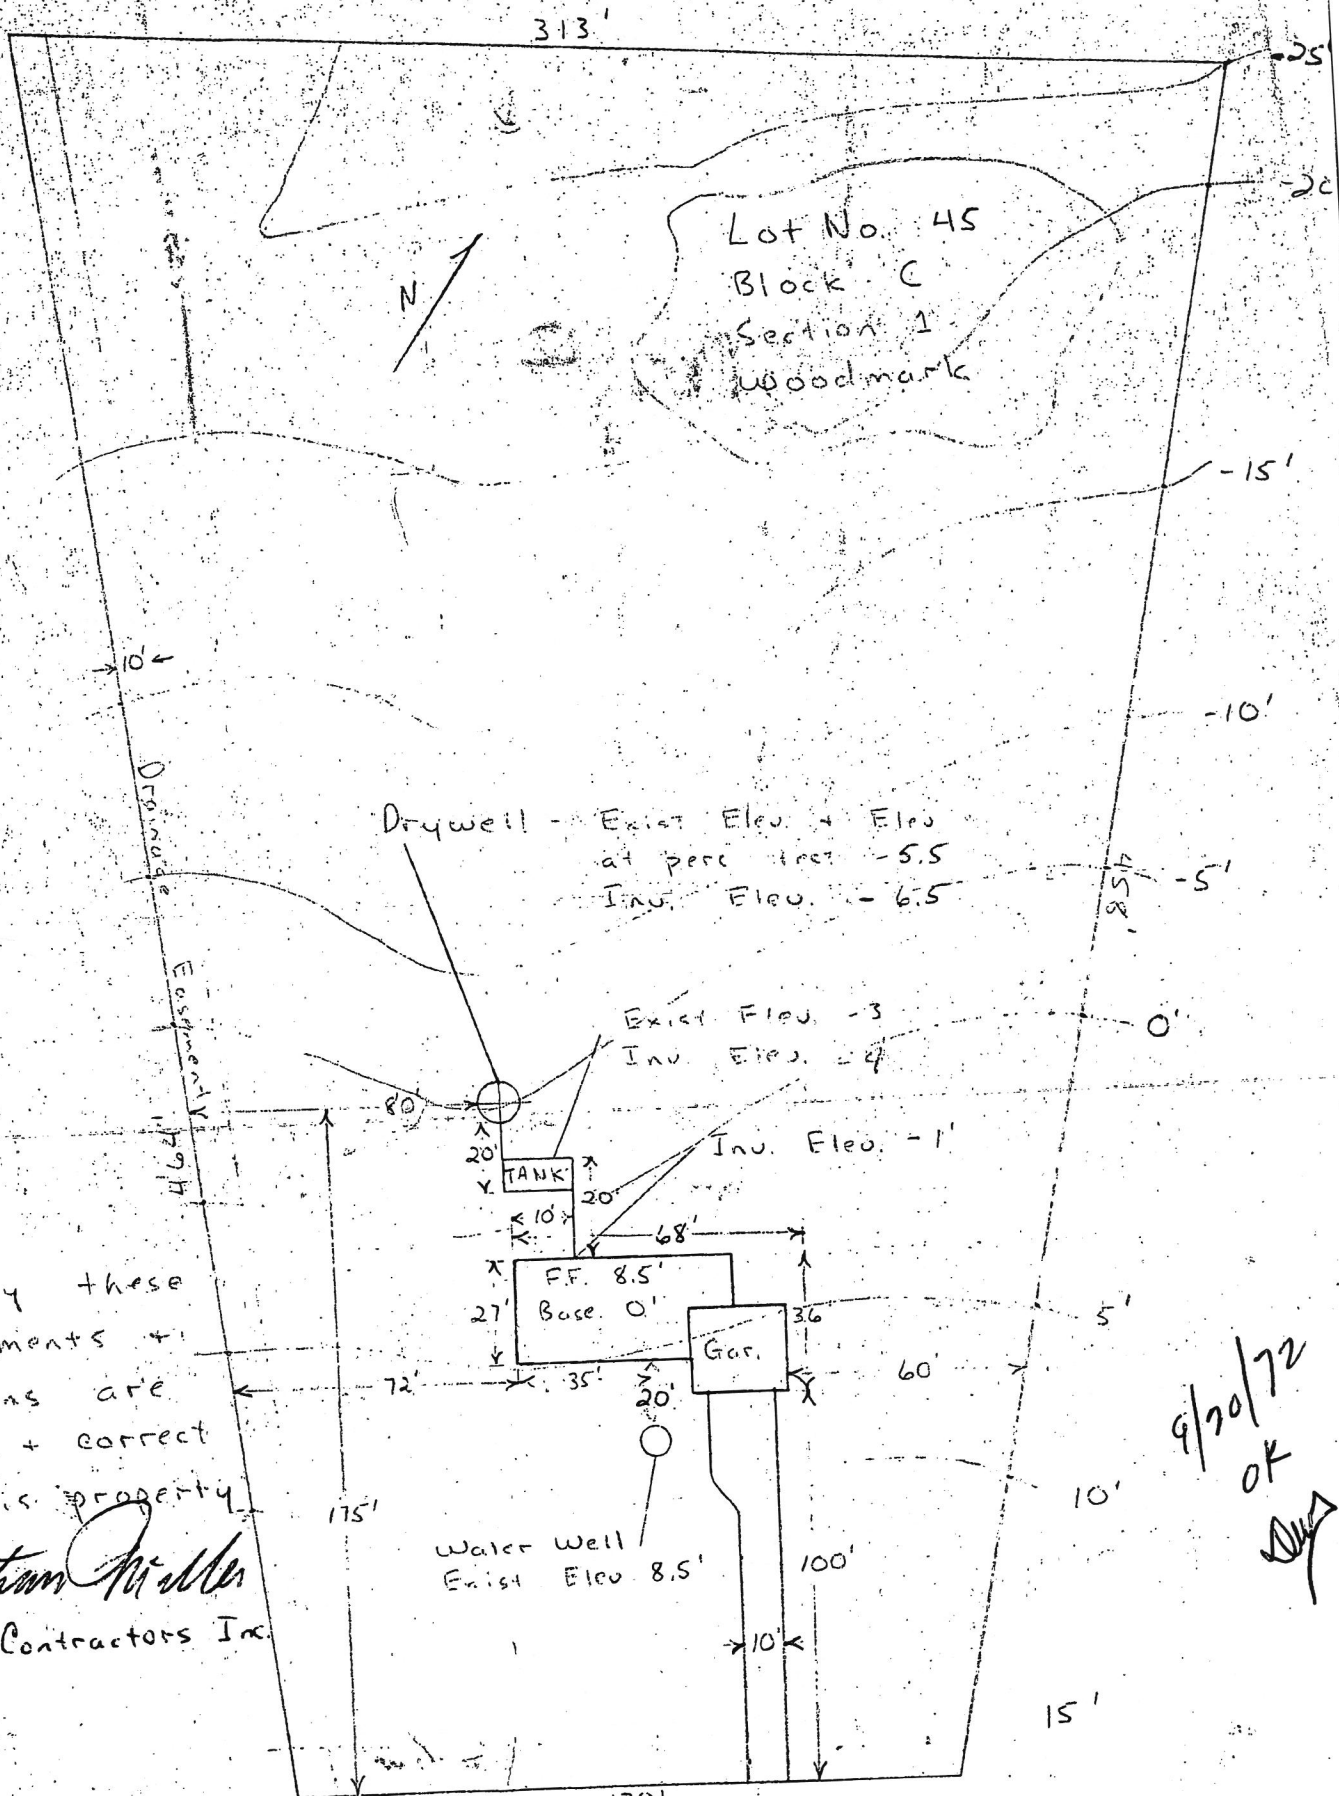 313'
-25
N
Lot No. 45
Block C
Section 1
Woodmark
-15'
10'
-10'
Drainage Easement
Drywell - Exist Elev. + Elev
at perc -5.5
Inv. Elev. - 6.5
-5'
458'
Exist Elev. -3
Inv. Elev. -4'
0'
80'
20'
TANK
20'
Inv. Elev. -1'
10'
68'
464'
F.F. 8.5'
Base 0'
27'
36
Gar.
5'
these
ments +
are
+ correct
is property
72'
35'
20'
60'
9/20/72
OK
10'
175'
Water Well
Exist Elev 8.5'
100'
Contractors Inc.
10'
15'